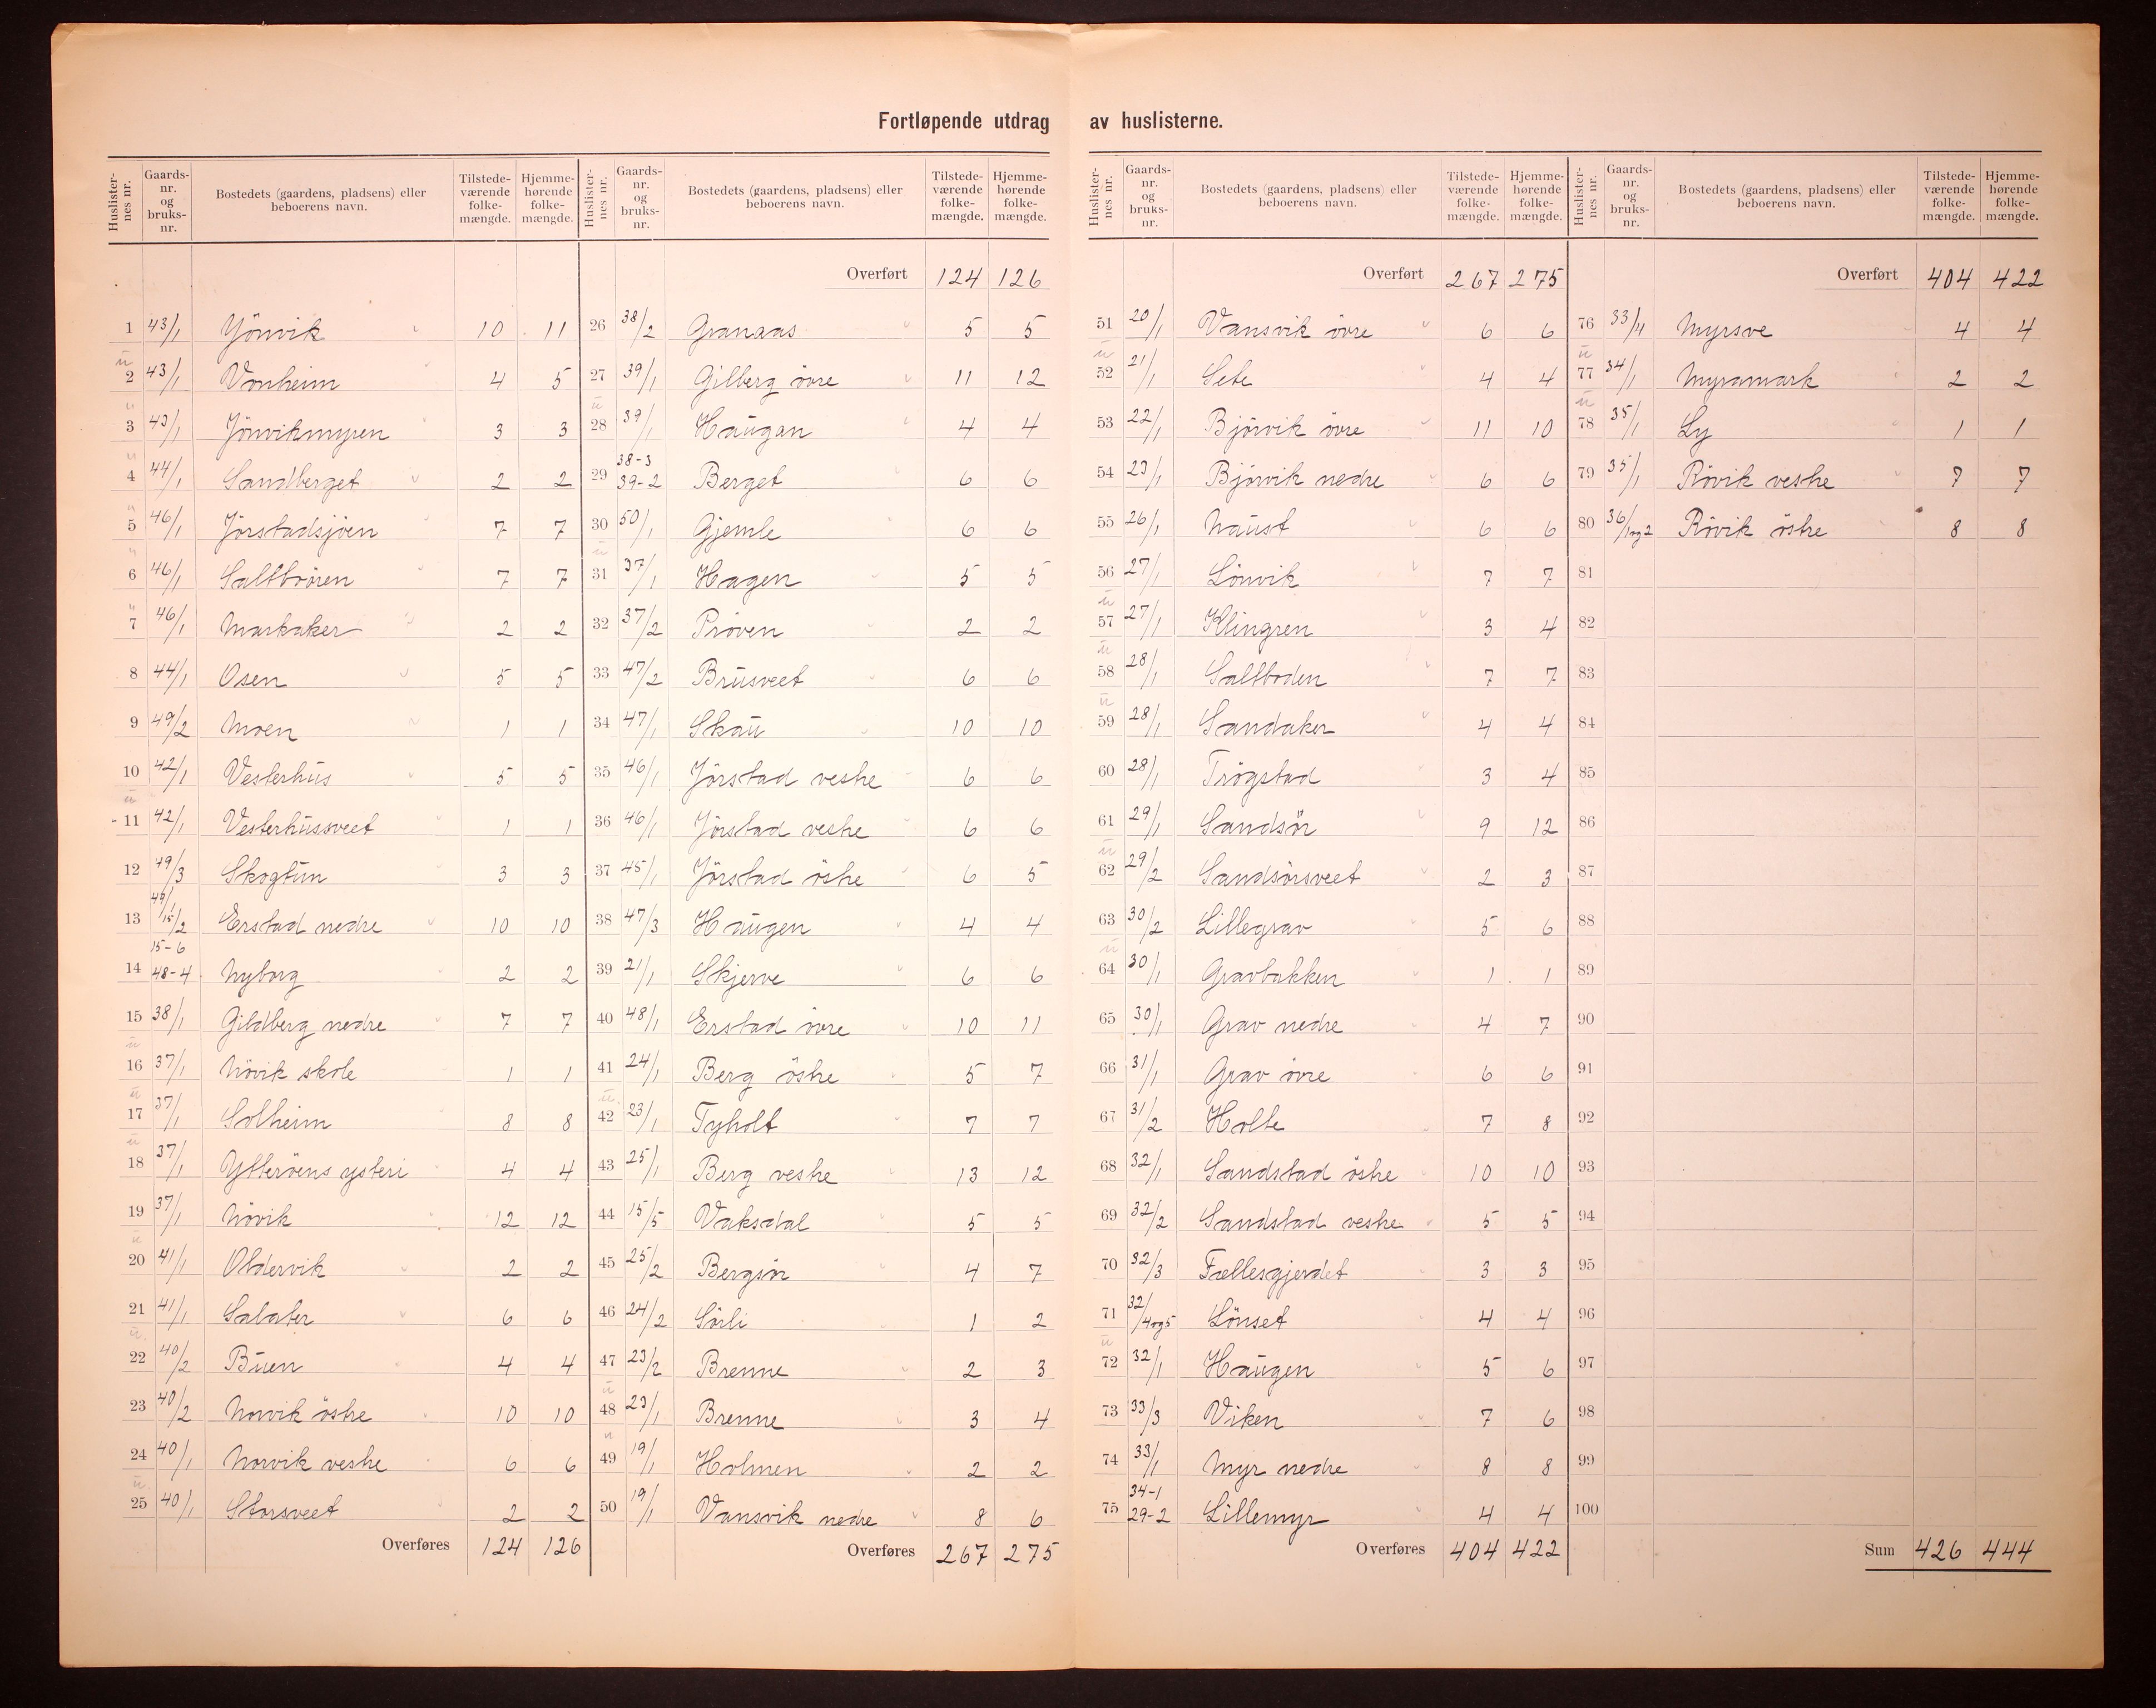 Fortløpende utdrag av huslisterne.
Huslisternes nr. Gaards-nr. og bruks-nr. Bostedets (gaardens, pladsens) eller beboerens navn. Tilstedeværende folkemængde. Hjemmehørende folkemængde.
1 43/1 Yönvik 10 11
ü
2 43/1 Vonheim 4 5
3 43/1 Jönvikmyren 3 3
4 44/1 Sandberget 2 2
5 46/1 Jörstadsjöen 7 7
6 46/1 Saltbören 7 7
7 46/1 Markaker 2 2
8 44/1 Osen 5 5
9 49/2 Moen 1 1
10 42/1 Vesterhüs 5 5
11 42/1 Vesterhüssveet 1 1
12 49/3 Skogtün 3 3
13 49/1 15/2 Erstad nedre 10 10
14 15-6 48-4 Nyborg 2 2
15 38/1 Gildberg nedre 7 7
16 37/1 Növik skole 1 1
17 37/1 Solheim 8 8
18 37/1 Ytteröens ysteri 4 4
19 37/1 Növik 12 12
20 41/1 Oldervik 2 2
21 41/1 Salater 6 6
22 40/2 Büen 4 4
23 40/2 Norvik östre 10 10
24 40/1 Norvik vestre 6 6
25 40/1 Storsveet 2 2
Overføres 124 126
Huslisternes nr. Gaards-nr. og bruks-nr. Bostedets (gaardens, pladsens) eller beboerens navn. Tilstedeværende folkemængde. Hjemmehørende folkemængde.
Overført 124 126
26 38/2 Granaas 5 5
27 39/1 Gilberg övre 11 12
28 39/1 Haügan 4 4
29 38-3 39-2 Berget 6 6
30 50/1 Gjemle 6 6
31 37/1 Hagen 5 5
32 37/2 Pröven 2 2
33 47/2 Brüsveet 6 6
34 47/1 Skaü 10 10
35 46/1 Jörstad vestre 6 6
36 46/1 Jörstad vestre 6 6
37 45/1 Jörstad östre 6 5
38 47/3 Haügen 4 4
39 21/1 Skjerve 6 6
40 48/1 Erstad övre 10 11
41 24/1 Berg östre 5 7
42 23/1 Tyholt 7 7
43 25/1 Berg vestre 13 12
44 15/5 Vaksdal 5 5
45 25/2 Bergsör 4 7
46 24/2 Sörli 1 2
47 23/2 Brenne 2 3
48 23/1 Brenne 3 4
49 19/1 Holmen 2 2
50 19/1 Vansvik nedre 8 6
Overføres 267 275
Huslisternes nr. Gaards-nr. og bruks-nr. Bostedets (gaardens, pladsens) eller beboerens navn. Tilstedeværende folkemængde. Hjemmehørende folkemængde.
Overført 267 275
51 20/1 Vansvik övre 6 6
52 21/1 Sete 4 4
53 22/1 Bjórvik övre 11 10
54 23/1 Bjórvik nedre 6 6
55 26/1 Naüst 6 6
56 27/1 Lönvik 7 7
57 27/1 Klingren 3 4
58 28/1 Saltboden 7 7
59 28/1 Sandaker 4 4
60 28/1 Trögstad 3 4
61 29/1 Sandsör 9 12
62 29/2 Sandsörsveet 2 3
63 30/2 Lillegrav 5 6
64 30/1 Gravbakken 1 1
65 30/1 Grav nedre 4 7
66 31/1 Grav övre 6 6
67 31/2 Holte 7 8
68 32/1 Sandstad östre 10 10
69 32/2 Sandstad vestre 5 5
70 32/3 Fællesgjerdet 3 3
71 32/4og5 Lönset 4 4
72 32/1 Haügen 5 6
73 33/3 Viken 7 6
74 33/1 Myr nedre 8 8
75 34-1 29-2 Lillemyr 4 4
Overføres 404 422
Huslisternes nr. Gaards-nr. og bruks-nr. Bostedets (gaardens, pladsens) eller beboerens navn. Tilstedeværende folkemængde. Hjemmehørende folkemængde.
Overført 404 422
76 33/4 Myrsve 4 4
77 34/1 Myramark 2 2
78 35/1 Ly 1 1
79 35/1 Rövik vestre 7 7
80 36/1og2 Rövik östre 8 8
81
82
83
84
85
86
87
88
89
90
91
92
93
94
95
96
97
98
99
100
Sum 426 444